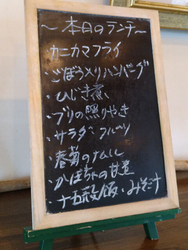 ～本日のランチ～
カニカマフライ
・ごぼう入りハンバーグ
・ひじき煮
・ブリの照りやき
・サラダ・フルーツ
・春菊のナムル
・かぼちゃの甘煮
・十五穀飯・みそ汁